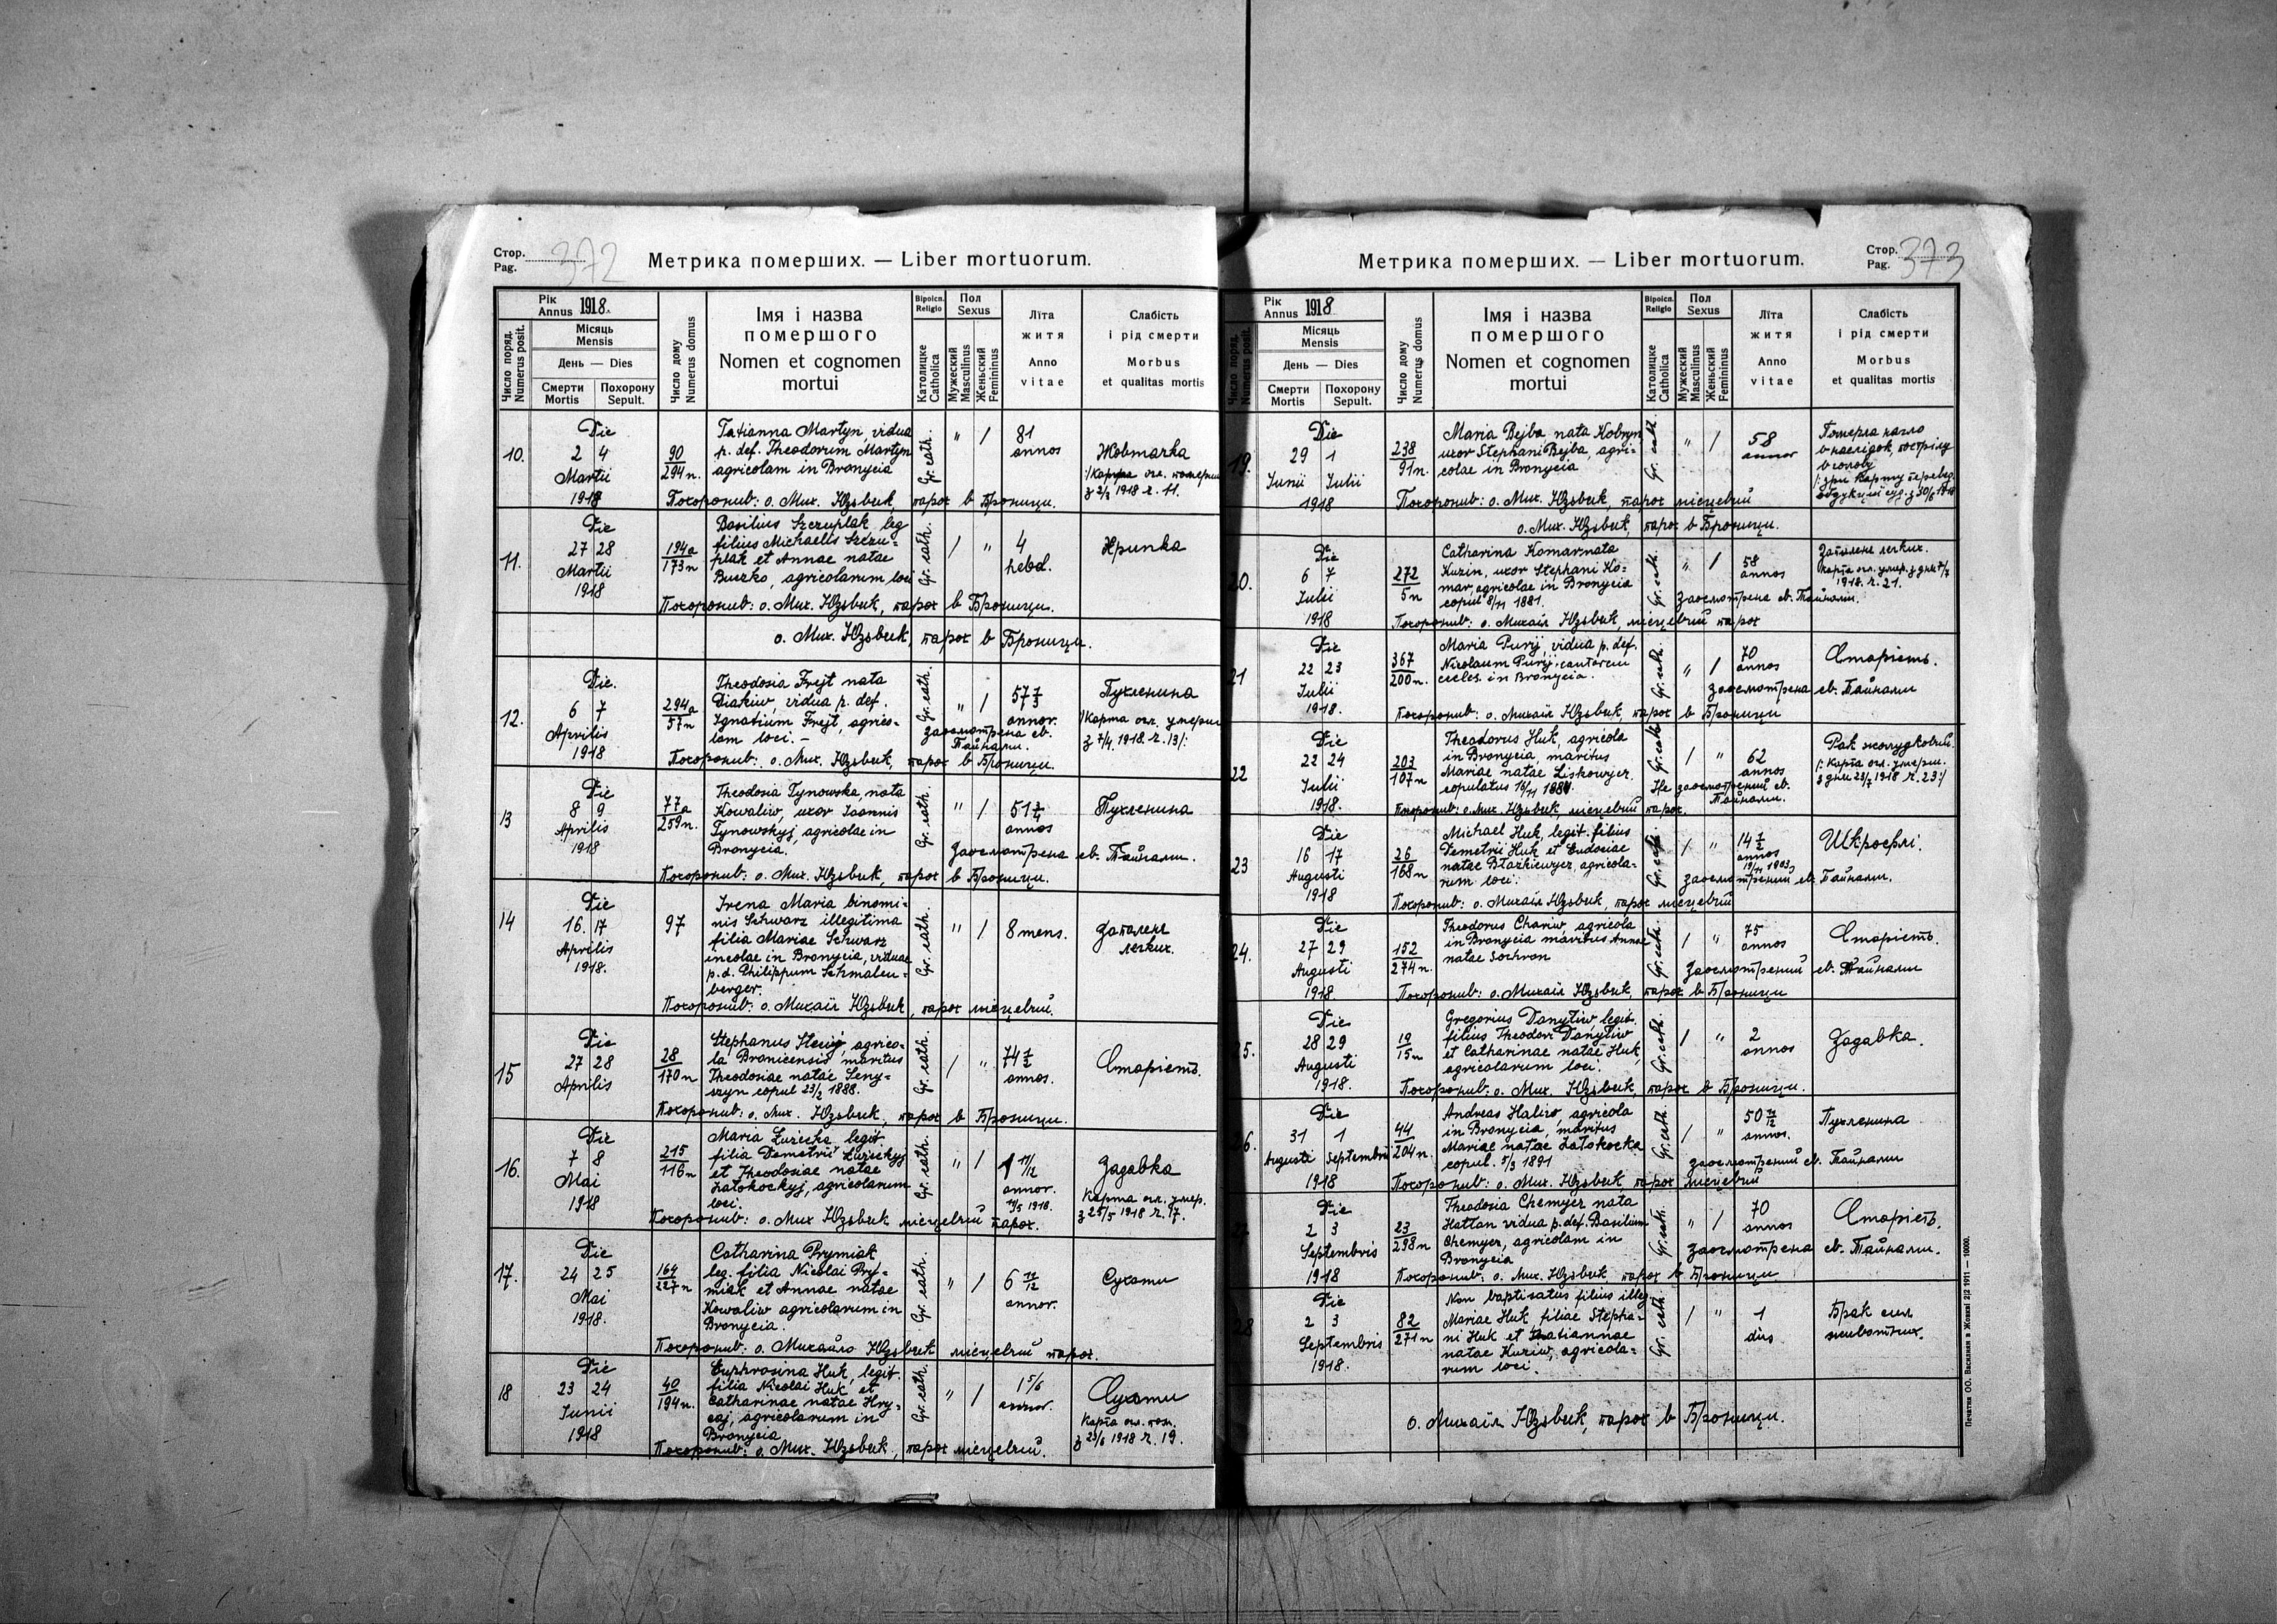 Стор. 372
Pag.
Метрика померших. — Liber mortuorum.
Рік
Annus 1918.
Число поряд.
Numerus posit.
Місяць
Mensis
День — Dies
Смерти
Mortis
Похорону
Sepult.
Число дому
Numerus domus
Імя і назва
помершого
Nomen et cognomen
mortui
Віроісп.
Religio
Католицке
Catholica
Пол
Sexus
Мужеский
Masculinus
Женьский
Femininus
Літа
житя
Anno
vitae
Слабість
і рід смерти
Morbus
et qualitas mortis
10.
Die
2 4
Martii
1918
90
294 n.
Tatianna Martyn, vidua
p. def. Theodorum Martyn
agricolam in Bronycia
Gr. cath.
" /
81
annos
Жовтачка
/Карта огл. померш
з 2/3 1918 ч. 11.
Похоронив: о. Мих. Юзьвяк, парох вБроници.
11.
Die
27 28
Martii
1918
194a
173 n
Basilius Szczuplak leg
filius Michaelis Szczu-
plak et Annae natae
Buczko, agricolarum loci
Gr. cath.
/ "
4
hebd.
Хрипка
Похоронив: о. Мих. Юзьвяк, парох в Броници.
о. Мих. Юзьвяк, парох в Броници.
12.
Die.
6 7
Aprilis
1918
294a
57 n
Theodosia Frejt nata
Diakiw, vidua p. def.
Ignatium Frejt, agrico-
lam loci. -
Gr. cath.
" /
57
annor.
Заосмотрена св.
Тайнами.
Пухленина
/Карта огл. умерш
з 7/4 1918. ч. 13/:
Похоронив: о. Мих. Юзьвяк, парох в Броници.
13
Die
8 9
Aprilis
1918
77a
259 n.
Theodosia Tynowska, nata
Kowaliw, uxor Ioannis
Tynowskyj, agricolae in
Bronycia.
Gr. cath.
" /
51
annos
Пухленина
Заосмотрена св. Тайнами.
Похоронив: о. Мих. Юзьвяк, парох в Броници.
14
Die
16. 17
Aprilis
1918.
97
Irena Maria binomi-
nis Schwarz illegitima
filia Mariae Schwarz
incolae in Bronycia, viduae
p. d. Philippum Schmalen-
berger.
Gr. cath.
" /
8 mens.
Запалене
легких.
Похоронив: о. Михаіл Юзьвяк, парох місцевий.
15
Die
27 28
Aprilis
28
170 n
Stephanus agrico-
la Bronicensis maritus
Theodosiae natae Seny-
szyn copul 23/2 1888.
Gr. cath.
/ "
74
annos.
Старість.
Похоронив: о. Мих. Юзьвяк, парох в Броници.
16.
Die
7 8
Mai
1918
215
116 n
Maria Łużecka legit.
filia Demetrii Łużeckyj
et Theodosiae natae
Zatokockyj, agricolarum
loci.
Gr. cath.
" /
11/12
annor.
Задавка
Карта огл. умер.
з 25/5 1918 ч. 17.
Похоронив: о. Мих Юзьвяк місцевий парох.
17.
Die
24 25
Mai
1918.
164
227 n
Catharina Prymiak
leg. filia Nicolai Pry-
miak et Annae natae
Kowaliw agricolarum in
Bronycia.
Gr. cath.
" /
6
annor.
Сухоти
Похоронив: о. Михайло Юзьвяк місцевий парох.
18
Die
23 24
Iunii
1918
40
194 n.
Euphrosina Huk, legit.
filia Nicolai Huk et
Catharinae natae Hry-
caj, agricolarum in
Bronycia
Gr. cath.
" /
1 5/6
annor.
Сухоти
Карта огл. пом.
з 23/6 1918 ч. 19.
Похоронив: о. Мих. Юзьвяк, парох місцевий.
Метрика померших. — Liber mortuorum.
Стор. 373
Pag.
Рік
Annus 1918
Число поряд.
Numerus posit.
Місяць
Mensis
День — Dies
Смерти
Mortis
Похорону
Sepult.
Число дому
Numerus domus
Імя і назва
помершого
Nomen et cognomen
mortui
Віроісп.
Religio
Католицке
Catholica
Пол
Sexus
Мужеский
Masculinus
Женьский
Femininus
Літа
житя
Anno
vitae
Слабість
і рід смерти
Morbus
et qualitas mortis
19.
Die
29 1
Iunii Iulii
1918
238
91 n.
Maria Bejba nata Kobryn
uxor Stephani Bejba, agri-
colae in Bronycia
Gr. cath.
" /
58
annor
Померла нагло
в наслідок пострілу
в голову
Похоронив: о. Мих. Юзьвяк, парох місцевий
о. Мих. Юзьвяк, парох в Броници.
20.
Die
6 7
Iulii
1918
272
5 n
Catharina Komar nata
Kuzin, uxor Stephani Ko-
mar, agricolae in Bronycia
copul 8/11 1881.
Gr. cath.
" /
58
annos
Запалене легких.
Карта огл. умер. з дня 7/7
1918. ч. 21.
Заосмотрена св. Тайнами.
Похоронив: о. Михаіл Юзьвяк, місцевий парох
21
Die
22 23
Iulii
1918.
367
200 n.
Maria Puryj, vidua p. def.
Nicolaum Puryj, cantorem
eccles. in Bronycia.
Gr. cath.
" /
70
annos
Старість.
Заосмотрена св. Тайнами
Похоронив: о. Михаіл Юзьвяк, парох в Броници
22
Die
22 24
Iulii
1918.
203
107 n
Theodorus Huk, agricola
in Bronycia, maritus
Mariae natae Liskowycz.
copulatus 16/11 1881.
Gr. cath
/ "
62
annos
Рак жолудковий.
/: Карта огл. умерш.
з дня 23/7 1918 ч. 23:/
Не заосмотрений св.
Тайнами.
Похоронив: о. Мих. Юзьвяк, місцевий парох.
23
Die
16 17
Augusti
1918
26
168 n
Michael Huk, legit. filius
Demetrii Huk et Eudociae
natae Błażkiewycz, agricola-
rum loci.
Gr. cath.
/ "
14
annos
19/11 1903
Шкрофлі.
Заосмотрений св. Тайнами.
Похоронив: о. Михаіл Юзьвяк, парох місцевий
24.
Die
27 29
Augusti
1918
152
274 n.
Theodorus Chariw, agricola
in Bronycia maritus Annae
natae Sochron
Gr. cath.
/ "
75
annos
Старість.
Заосмотрений св. Тайнами
Похоронив: о. Михаіл Юзьвяк, парох в Броници
25.
Die
28 29
Augusti
1918.
19
15 n
Gregorius Danyliw legit.
filius Theodori Danyliw
et Catharinae natae Huk,
agricolarum loci.
Gr. cath.
/ "
2
annos
Задавка.
Похоронив: о. Мих. Юзьвяк, парох в Броници.
26.
Die
31 1
Augusti Septembris
1918
44
204 n.
Andreas Haliw, agricola
in Bronycia, maritus
Mariae natae Zatokocka
copul. 5/3 1891
Gr. cath.
/ "
50
annos.
Пухленина
Заосмотрений св. Тайнами
Похоронив: о. Мих. Юзьвяк парох місцевий
27.
Die
2 3
Septembris
1918
23
298 n
Theodosia Chemycz nata
Hattan vidua p. def. Basilium
Chemycz, agricolam in
Bronycia
Gr. cath.
" /
70
annos
Старість.
Заосмотрена св. Тайнами.
Похоронив: о. Мих. Юзьвяк парох в Броници
28
Die
2 3
Septembris
1918.
82
271 n
Non baptisatus filius illeg.
Mariae Huk, filiae Stepha-
ni Huk et Tatiannae
natae Kuziw, agricola-
rum loci.
Gr. cath.
/ "
1
dies
Брак сил
животних.
о. Михаіл Юзьвяк, парох в Броници.
Печатня ОО. Василиян в Жовкві 2|2 1911 — 10000.